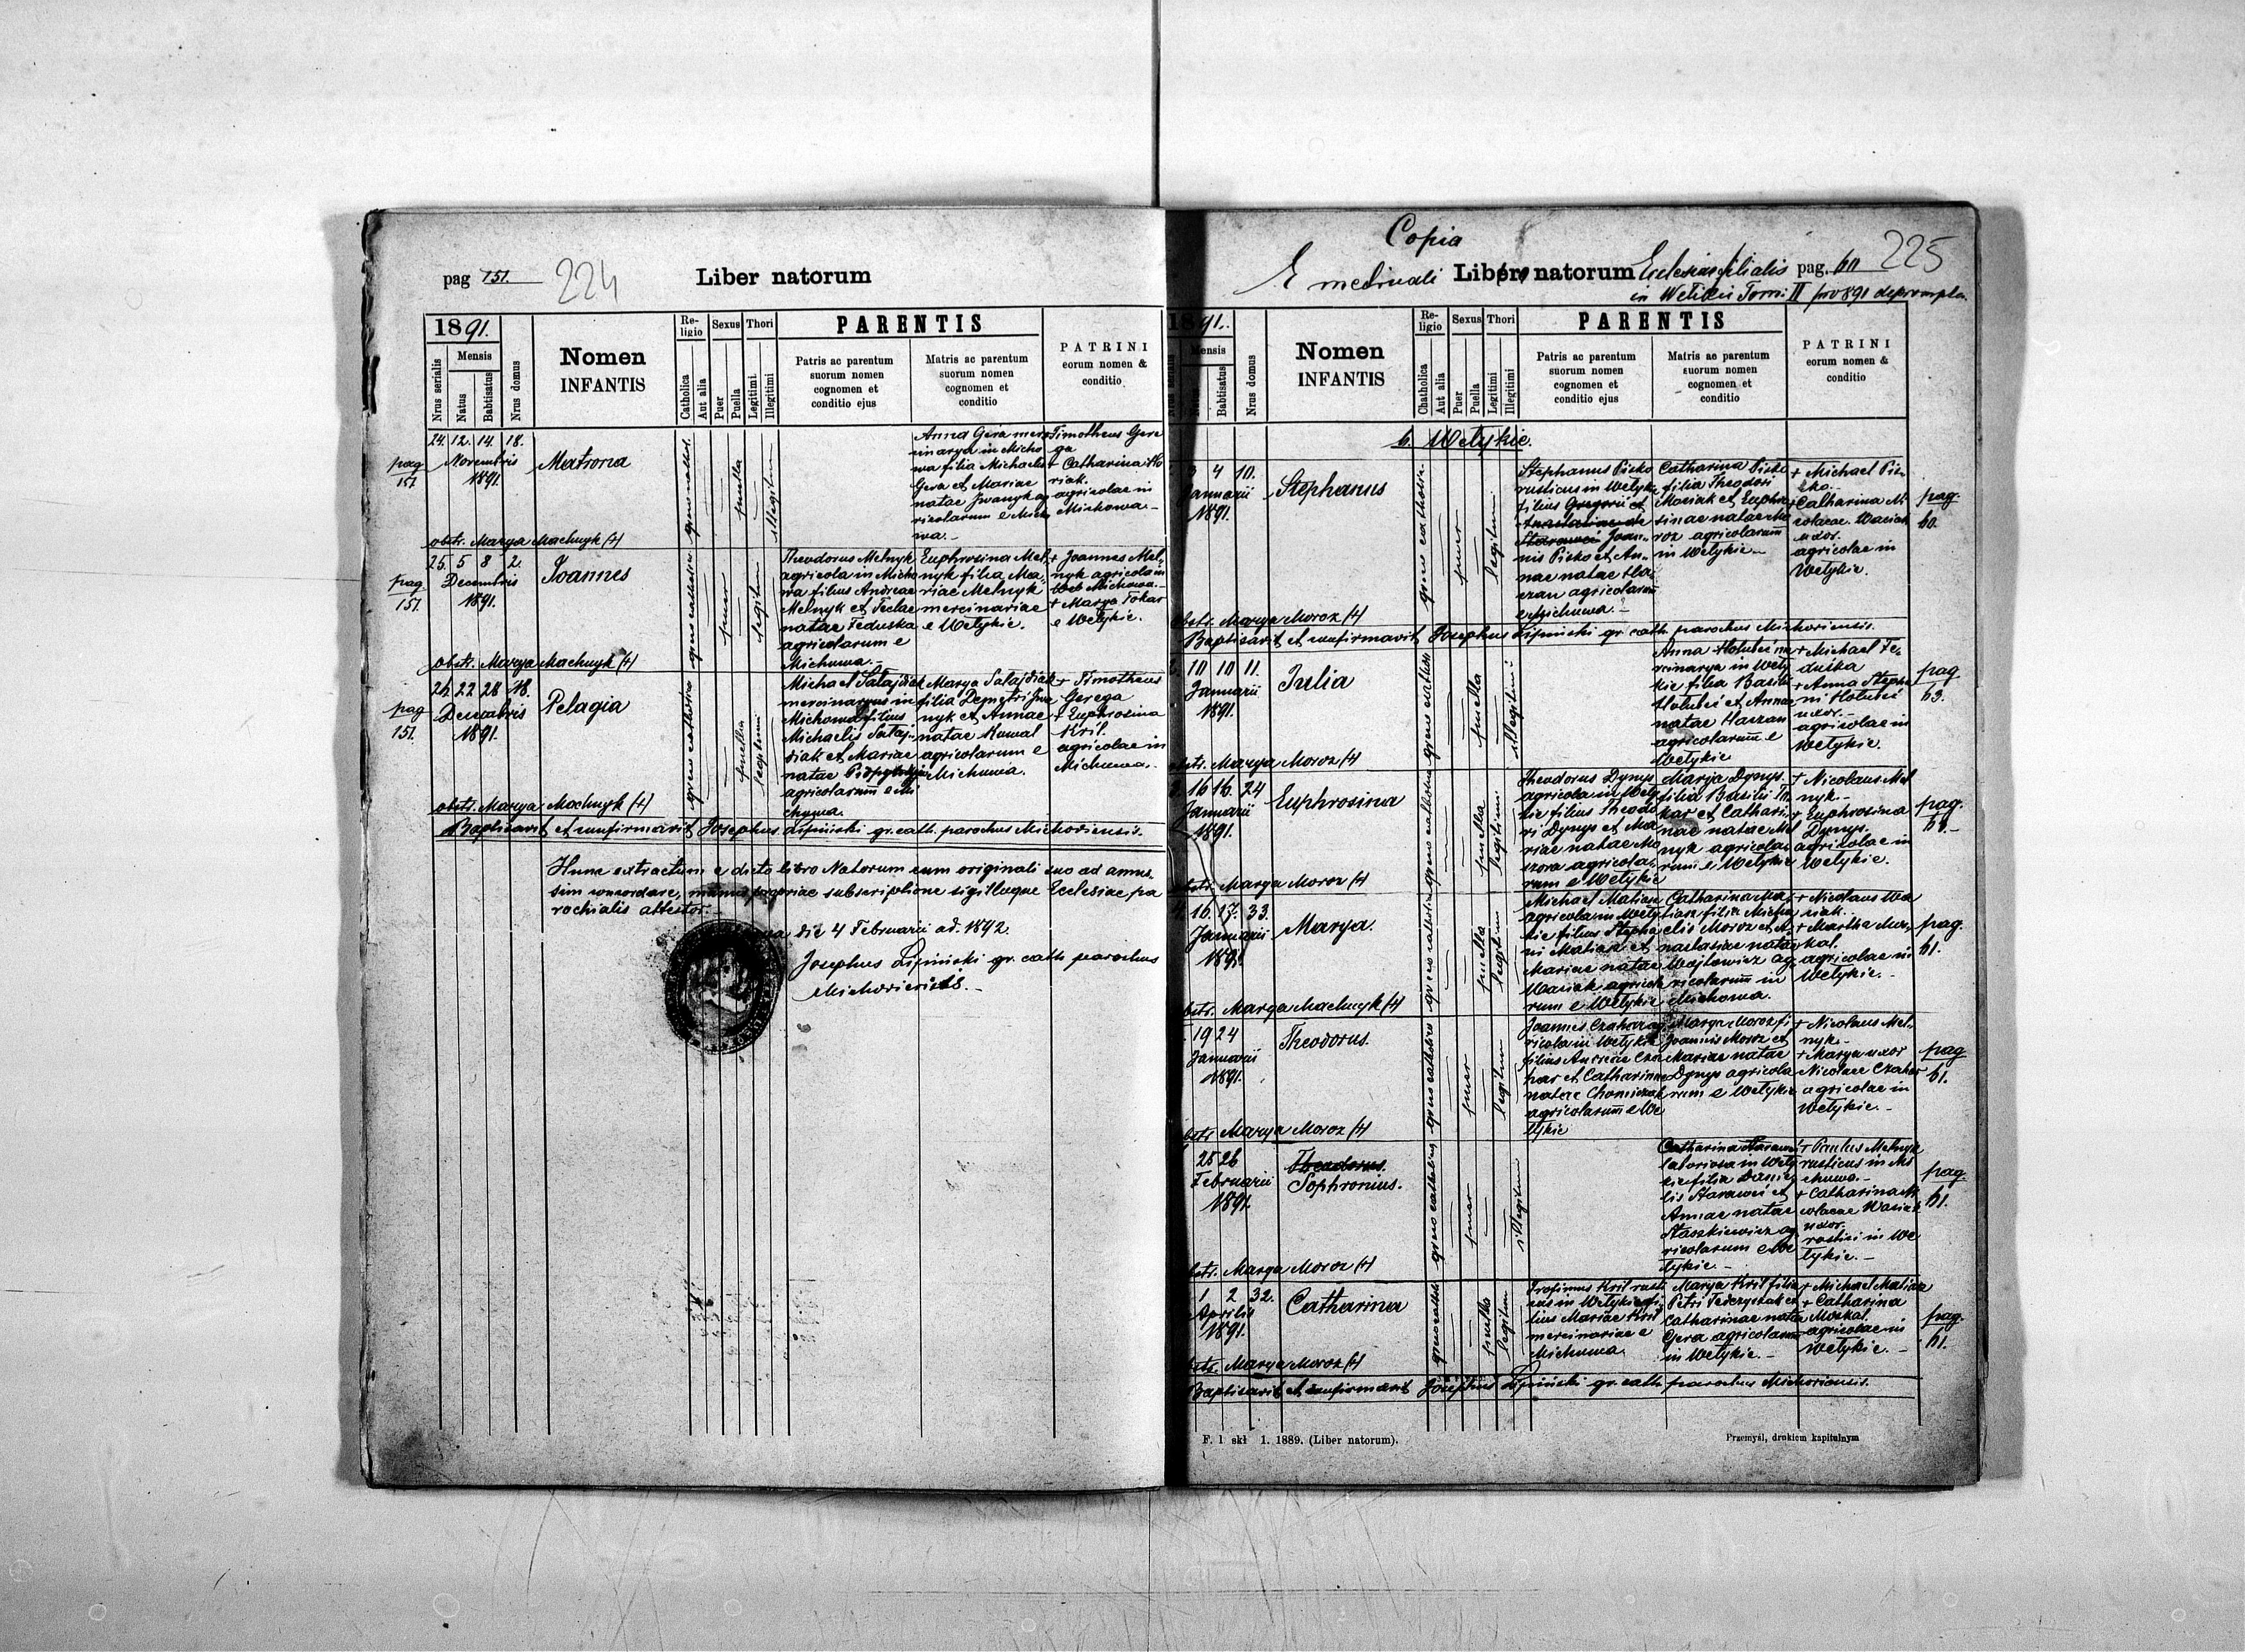 pag 151. 224 Liber natorum
1891.
Nrus serialis
Mensis
Natus
Babtisatus
Nrus domus
Nomen
INFANTIS
Re-
ligio
Catholica
Aut alia
Sexus
Puer
Puella
Thori
Legitimi.
Illegitimi
PARENTIS
Patris ac parentum
suorum nomen
cognomen et
conditio ejus
Matris ac parentum
suorum nomen
cognomen et
conditio
PATRINI
eorum nomen &
conditio
pag
151.
24. 12. 14. 18.
Novembris
1891.
Matrona
graeco cathol.
puella
illegitimi
Anna Gera merce
inarya in Micho
wa filia Michaelis
Gera et Mariae
natae Iwanyk ag
ricolarum e Micho
wa.-
Timotheus Gere
ga
+ Catharina Ho
riak.
agricolae in
Michowa.-
obstr. Marya Machnyk (+)
pag
151.
25. 5 8 2.
Decembris
1891.
Joannes
graeco catholica
puer
legitimi
Theodorus Melnyk
agricola in Micho
wa filius Andreae
Melnyk et Teclae
natae Feduska
agricolarum e
Michuwa.-
Euphrosina Mel,
nyk filia Ma,
riae Melnyk
mercinariae
e Wełykie.
+ Joannes Mel,
nyk agricola in
Michowa.
+ Marya Tokar
e Wełykie.
obstr. Marya Machnyk (+)
pag
151.
26. 22 28 18.
Decembris
1891.
Pelagia
graeco catholica
puella
legitimi
Michael Sałajdiak
mercinarius in
Michowa filius
Michaelis Sałaj-
diak et Mariae
natae
agricolarum e Mi
chuwa.
Marya Sałajdiak
filia Demetri Iwa
nyk et Annae
natae Kuwal
agricolarum e
Michuwa.
+ Timotheus
Gerega
+ Euphrosina
Kril.
agricolae in
Michuwa.
obstr. Marya Machnyk (+)
Baptisavit et confirmavit Josephus Lipiński gr. cath. parochus Michoviensis.
Hunc extractum e dicto libro Natorum cum originali suo ad amus.
sim concordare, manus propriae subscriptione sigilloque Ecclesiae pa
rochialis attestor.
die 4 Februarii ad. 1892
Josephus Lipiński gr. cath. parochus
Michoviensis.-
Copia
E metricali Libro natorum Ecclesiae filialis pag. 60 225
in Wełikie Tomi II pro 1891 deprompta.
1891.
Mensis
Babtisatus
Nrus domus
Nomen
INFANTIS
Re-
ligio
Chatholica
Aut alia
Sexus
Puer
Puella
Thori
Legitimi
Illegitimi
PARENTIS
Patris ac parentum
suorum nomen
cognomen et
conditio ejus
Matris ac parentum
suorum nomen
cognomen et
conditio
PATRINI
eorum nomen &
conditio
b. Wełykie.
3 4 10.
Januarii
1891.
Stephanus
graeco catholica
puer
legitimi
Stephanus Pisko
rusticus in Wełykie
filius Gregorii et
Joan-
nis Pisko et An-
nae natae Ha,
czan agricolarum
e Michuwa.-
Catharina Pisko
filia Theodori
Mosiak et Euphro
sinae natae Mo
roz agricolarum
in Wełykie.-
+ Michael Pis-
ko.-
Catharina Ni-
colaeae Wasiak
uxor.
agricolae in
Wełykie.
pag.
60.
obstr. Marya Moroz (+)
Baptisavit et confirmavit Josephus Lipiński gr. cath. parochus Michoviensis.
10 10 11.
Januarii
1891.
Julia
graeco cathol
puella
illegitimi
Anna Hołubci me
rcinarya in Weły
kie filia Basili
Hołubci et Annae
natae Haczan
agricolarum e
Wełykie
+ Michael Fe,
duska
+ Anna Stepha
ni Hołubci
uxor.-
agricolae in
Wełykie.
pag
63.
obstr. Marya Moroz (+)
16 16. 24
Januarii
1891.
Euphrosina
graeco catholica
puella
legitimi
Theodorus Dynys
agricola in Weły
kie filius Theodo
ri Dynys et Ma
riae natae Mo
agricola,
rum e Wełykie
Marya Dynys.
filia Basilii To
kar et Cathari,
nae natae Mel
nyk agricola
rum e Wełykie
+ Nicolaus Mel
nyk.-
+ Euphrosina
Dynys.
agricolae in
Wełykie.
pag.
61.-
obstr. Marya Moroz (+)
16. 17. 33.
Januarii
1891.
Marya.
graeco catholica
puella
legitimi
Michael Matiasz
agricola in Weły
kie filius Stepha
ni Matiasz et
Mariae natae
Wasiak agricola
rum e Wełykie
Catharina Ma,
tiasz filia Micha
elis Moroz et A,
nastasiae natae
Wojtowicz ag
ricolarum in
Michowa.
+ Nicolaus Wa
siak.
+ Martha Mos,
kal.
agricolae in
Wełykie.-
pag.
61.
obstr. Marya Machnyk (+)
19 24
Januarii
1891.
Theodorus.
graeco catholica
puer
legitimi
Joannes Czahar ag
ricola in Wełykie
filius Andreae Cza
har et Catharinae
natae Chomiczak
agricolarum e We
łykie
Marya Moroz fi
Joannis Moroz et
Mariae natae
Dynys agricola
rum e Wełykie
+ Nicolaus Mel,
nyk.-
+ Marya uxor
Nicolaee Czahar
agricolae in
Wełykie.-
pag
61.
obstr. Marya Moroz (+)
25 26
Februarii
1891.
Theodorus.
Sophronius.
graeco catholica
puer
illegitimi
Catharina Starawci
laboriosa in Weły
kie filia Danie,
lis Starawci et
Annae natae
Staszkiewicz ag
ricolarum e We
łykie.-
+ Paulus Melnyk
rusticus in Mi
chuwa.-
+ Catharina Ni
colaeae Wasiak
uxor.
rustici in We
łykie.-
pag.
61.
obstr. Marya Moroz (+)
1 2 32.
Aprilis
1891.
Catharina
graeco cathol
puella
legitimi
Trofimus Kril rusti
cus in Wełykie fi,
lius Mariae Kril
mercinariae e
Michuwa.
Marya Kril filia
Petri Fedczyszak et
Catharinae natae
Gera agricolarum
in Wełykie.-
+ Michael Matiasz
+ Catharina
Moskal.
agricolae in
Wełykie.-
pag.
61.
obstr. Marya Moroz (+)
Baptisavit et confirmavit Josephus Lipiński gr. cath. parochus Michoviensis.
F. 1 skł 1. 1889. (Liber natorum).
Przemyśl, drukiem kapitulnym